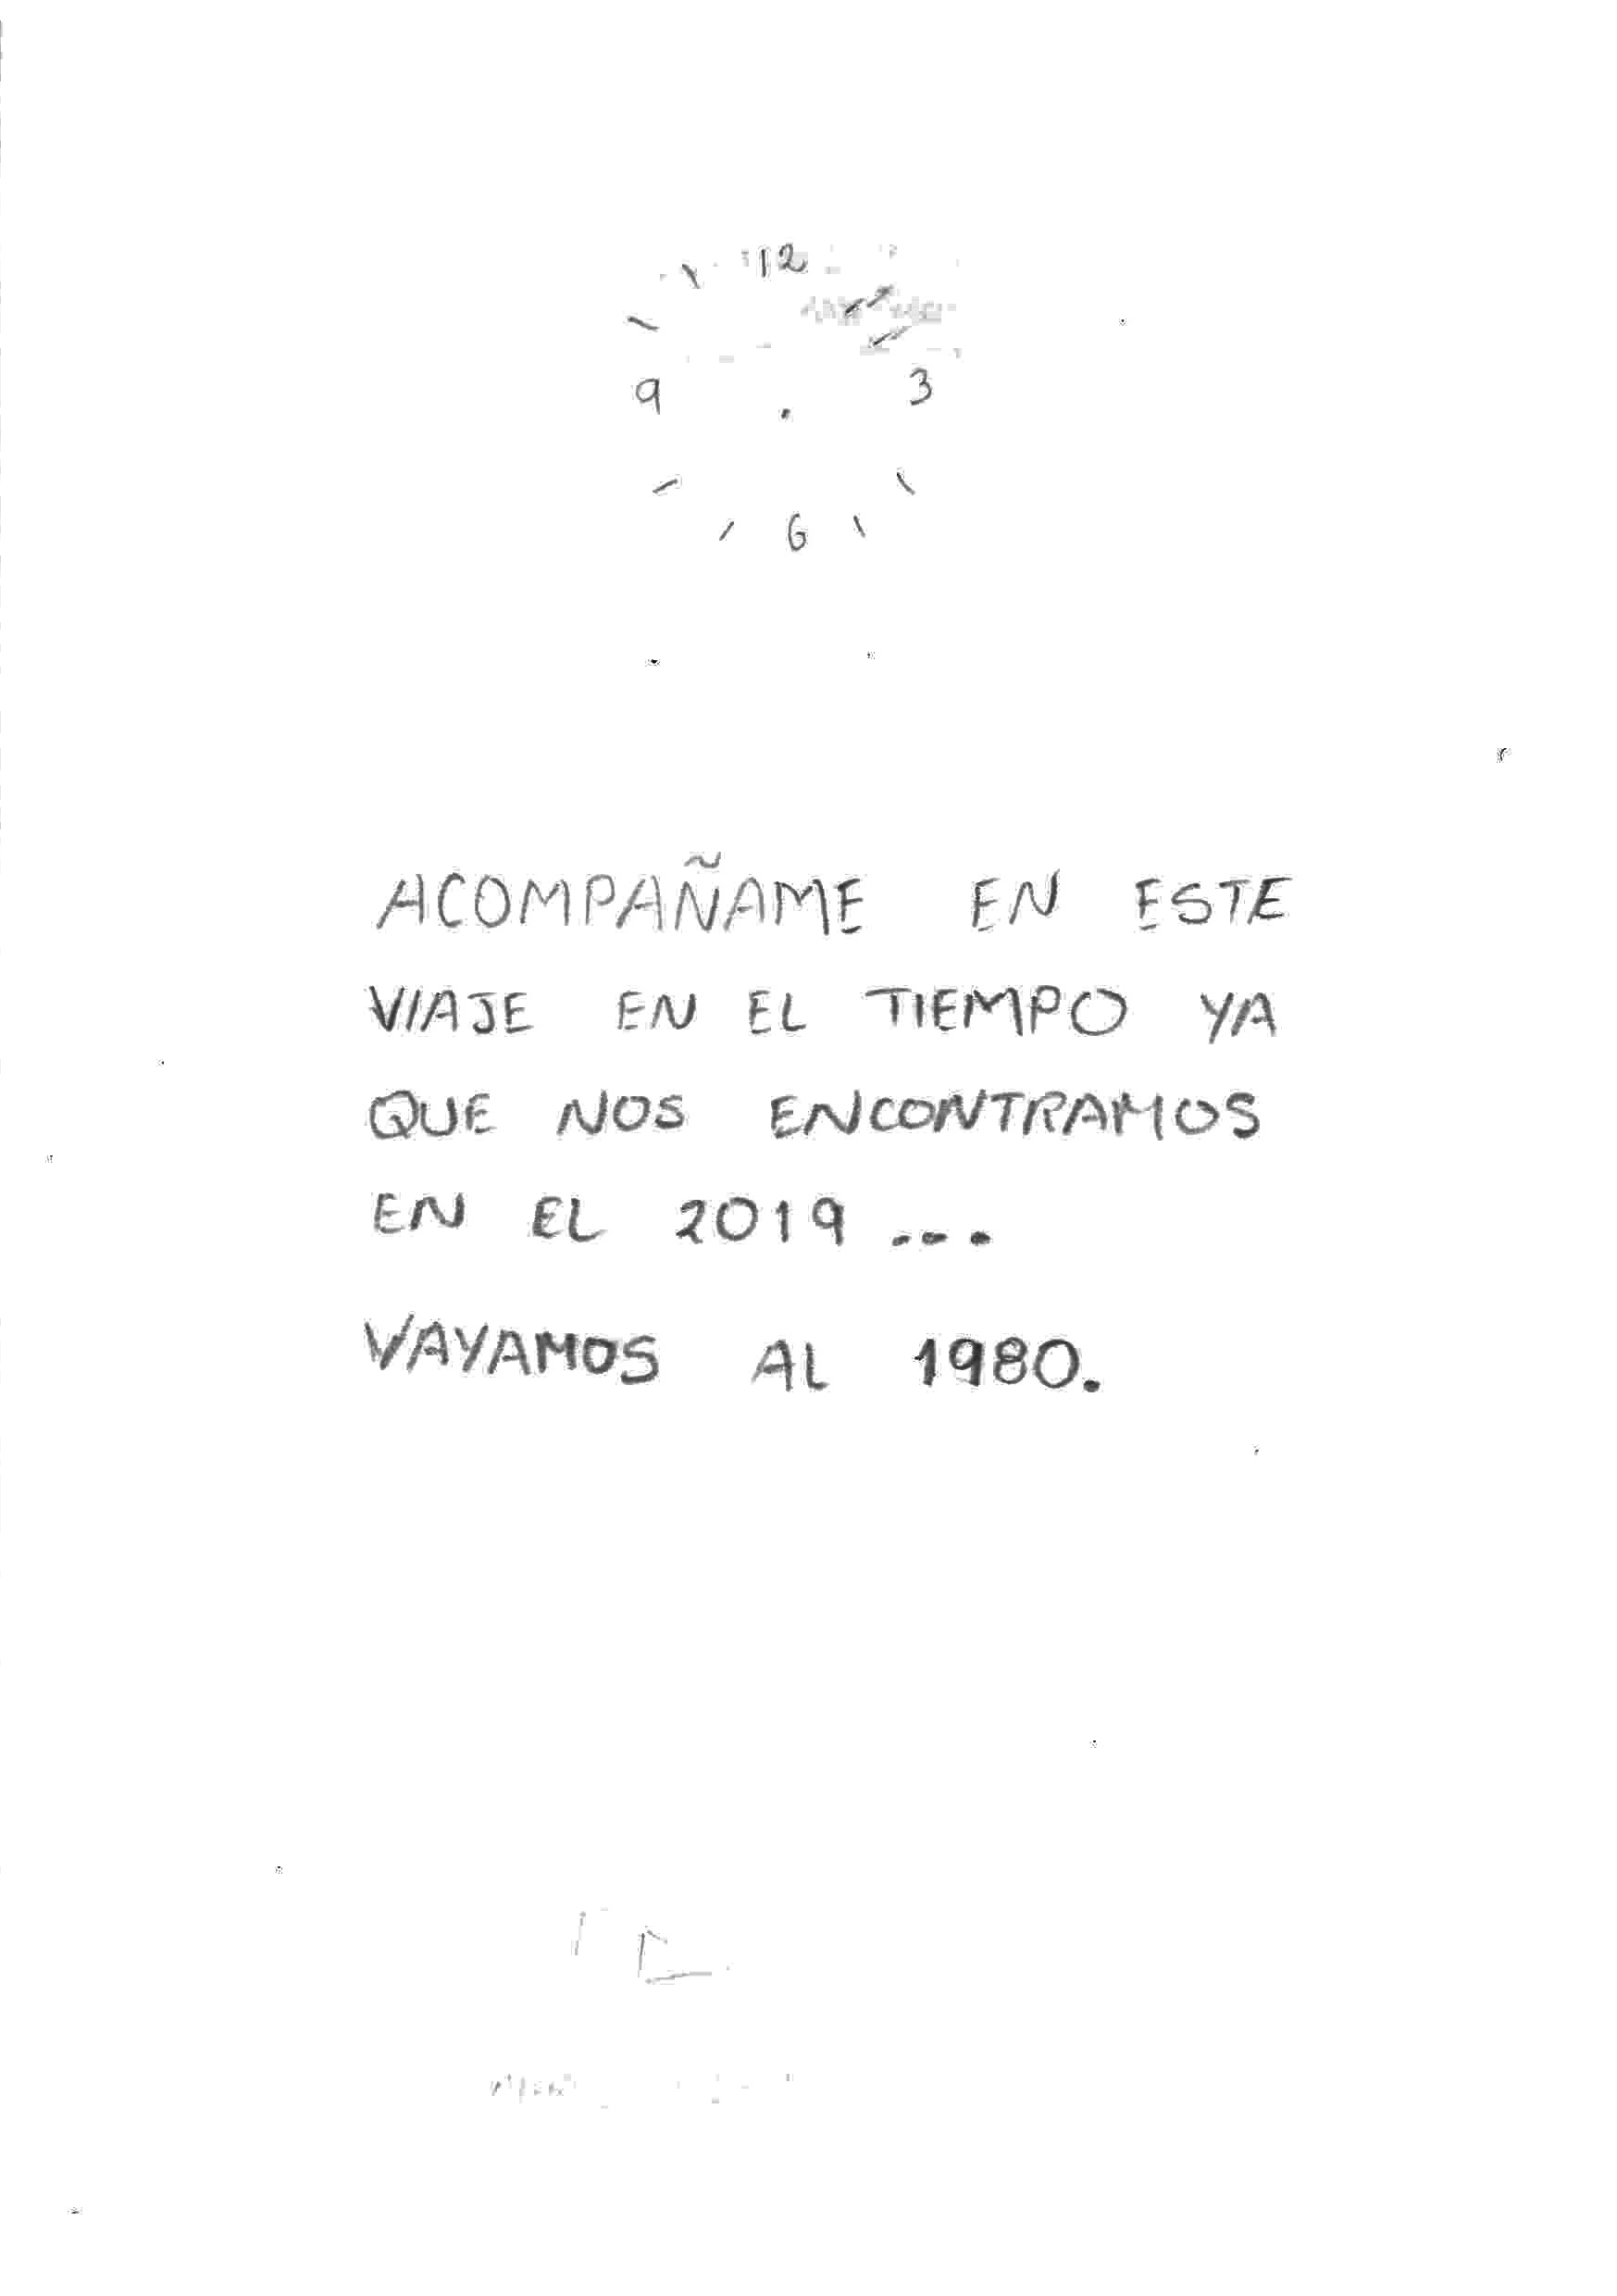 12
9 3
6
ACOMPAÑAME EN ESTE
VIAJE EN EL TIEMPO YA
QUE NOS ENCONTRAMOS
EN EL 2019 ...
VAYAMOS AL 1980.